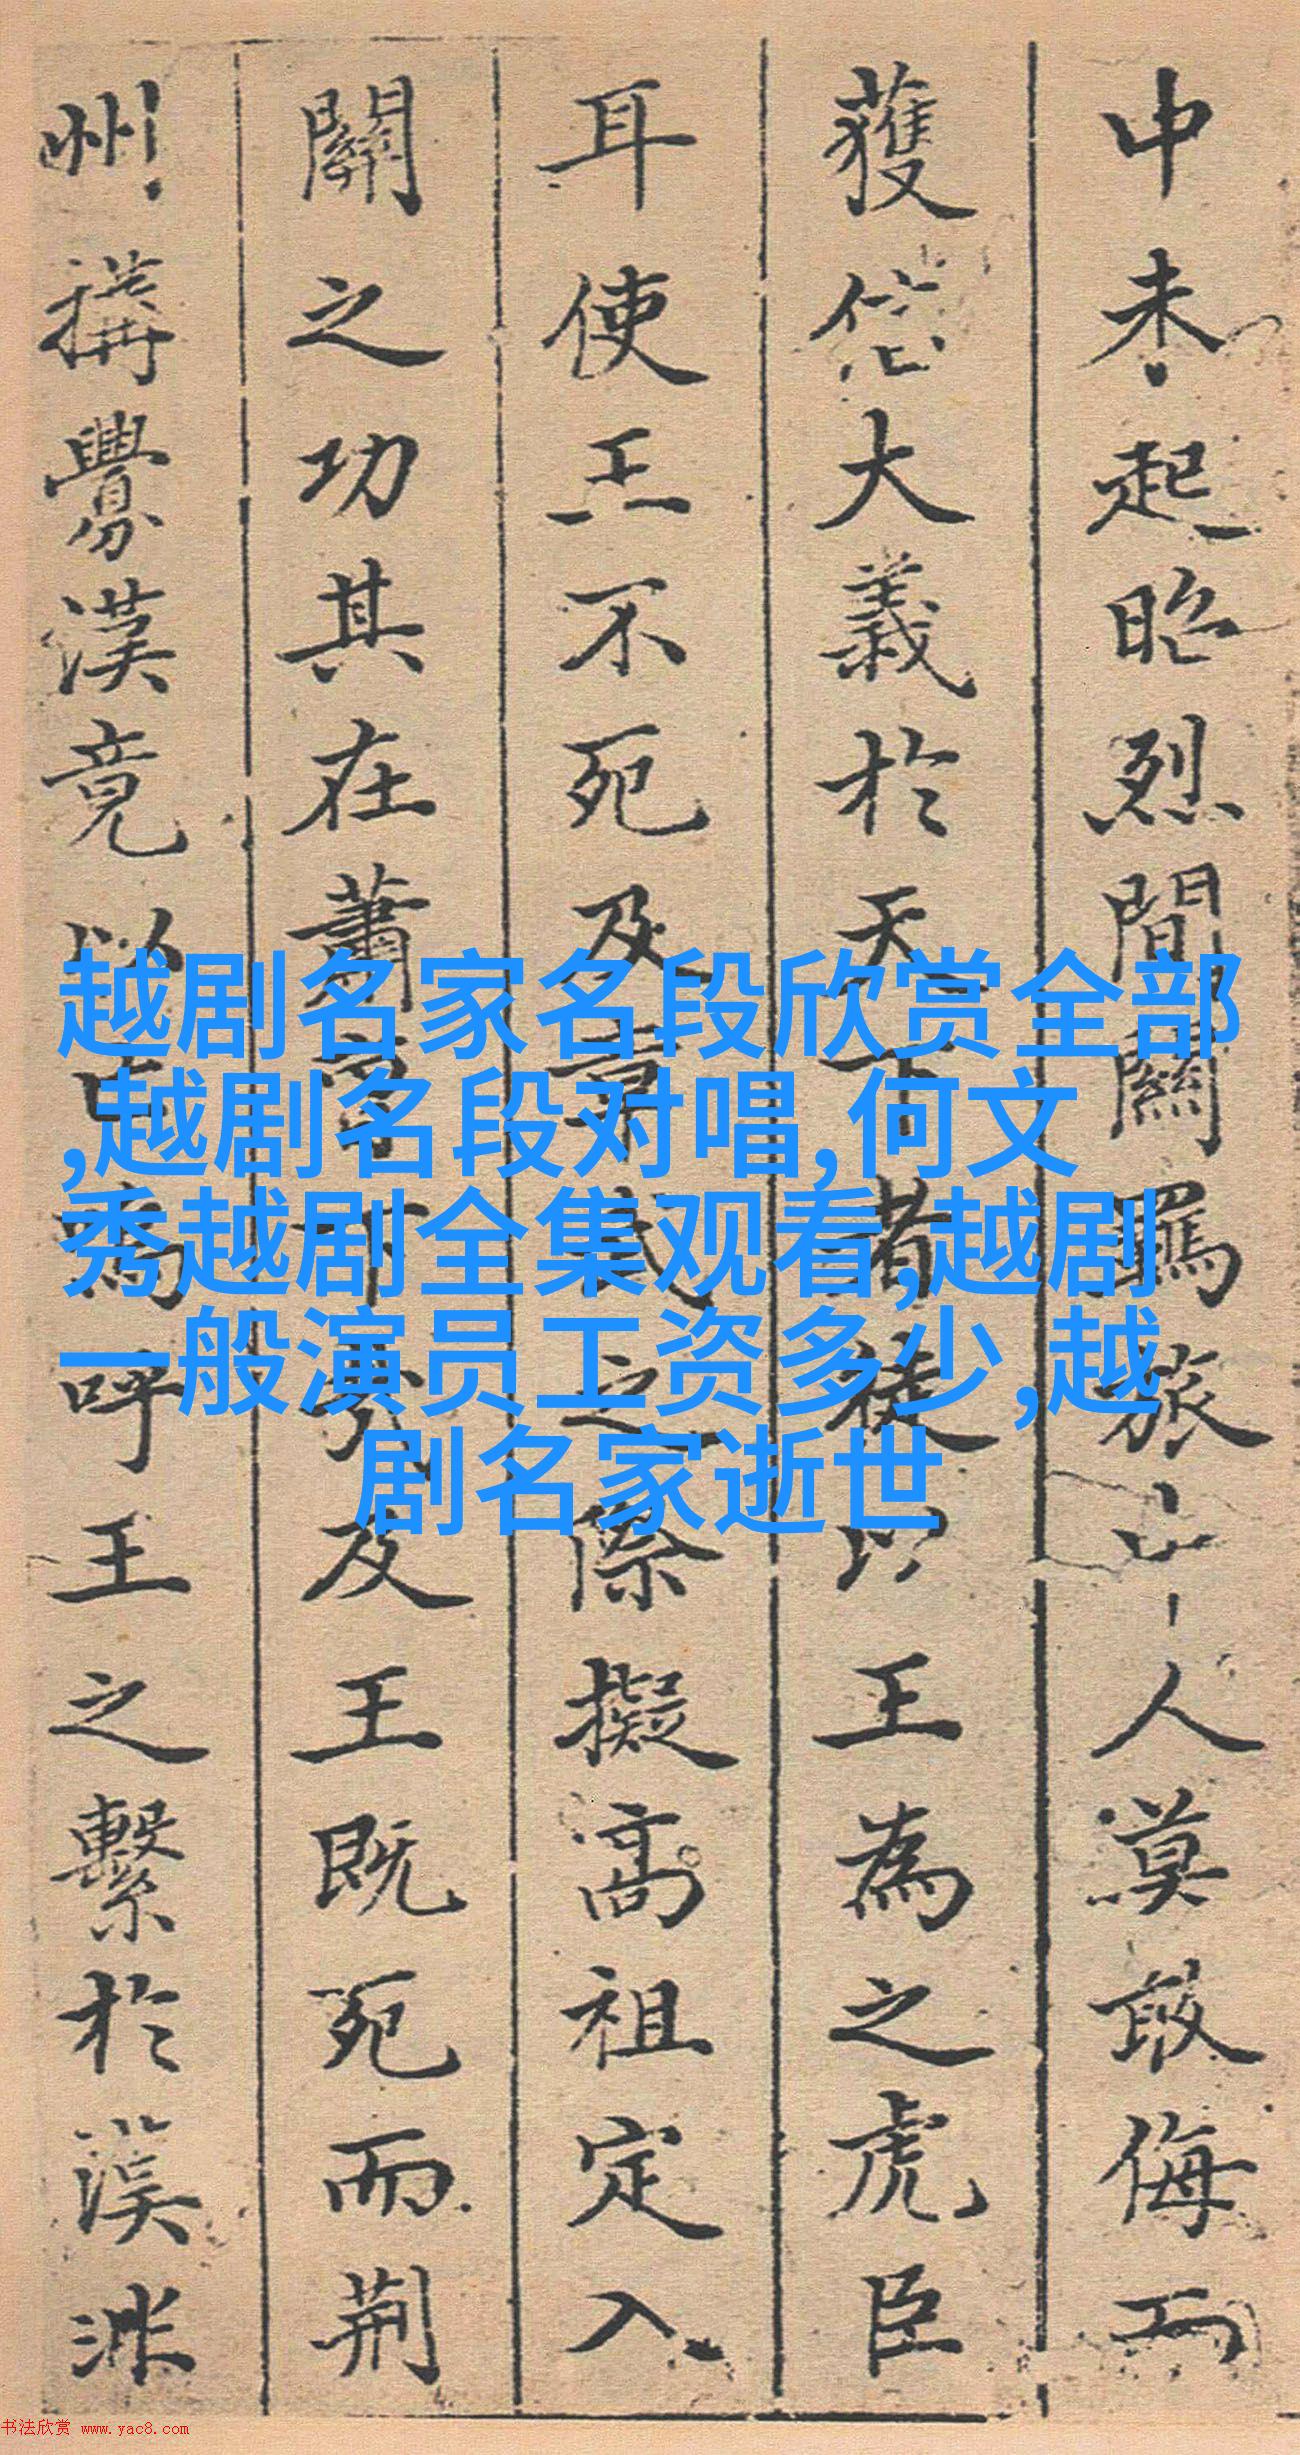 中未起昭烈間關羈旅人莫敢侮而
獲信大義於天下者徒以王為之虎臣
耳使王不死及章武之際擬高祖定入
關之功其在蕭下及王既死而荊
州搆釁漢竟以亡嗚呼王之繫於漢非
越剧名家名段欣赏全部
,越剧名段对唱,何文
秀越剧全集观看,越剧
一般演员工资多少,越
剧名家逝世
书法欣赏 www.yac8.com